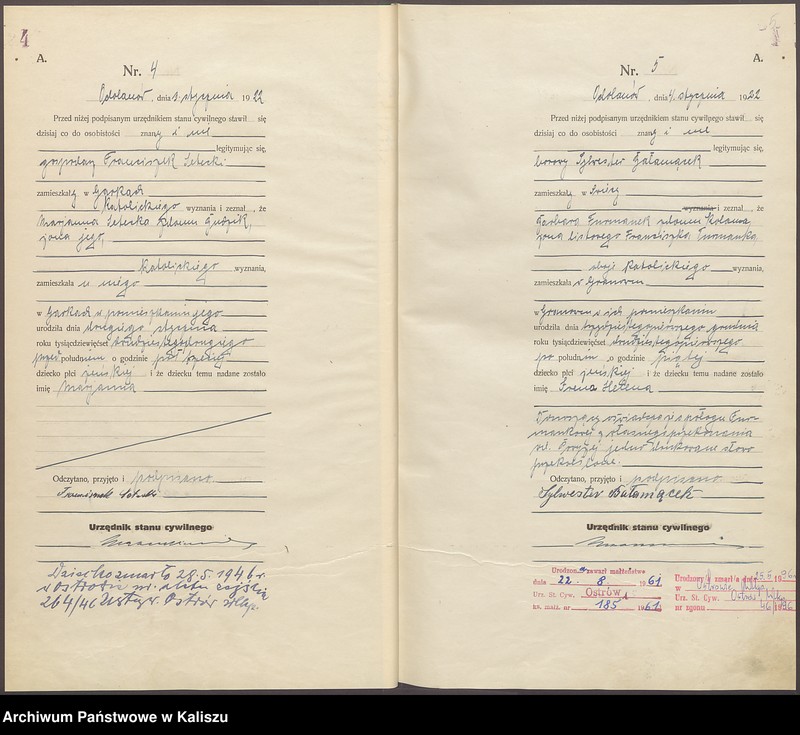 4
A.
Nr. 4
Odolanów, dnia 3. stycznia 1922
Przed niżej podpisanym urzędnikiem stanu cywilnego stawił się
dzisiaj co do osobistości znany i nie
legitymując się,
gospodarz Franciszek Letecki
zamieszkały w Garkach
katolickiego wyznania i zeznał, że
Marjanna Letecka
żona jego,
katolickiego wyznania,
zamieszkała u niego
w Garkach w pomieszkaniu jego
urodziła dnia drugiego stycznia
roku tysiącdziewięćset dwudziestegodrugiego
przed południem o godzinie
dziecko płci żeńskiej i że dziecku temu nadane zostało
imię Marjanna
Odczytano, przyjęto i podpisano
Franciszek Letecki
Urzędnik stanu cywilnego
Dziecko zmarło 28.5.1946 r.
w Ostrowie nr. aktu zejścia
264/46 Ostrów Wlkp.
5
A.
Nr. 5
Odolanów, dnia 4. stycznia 1922
Przed niżej podpisanym urzędnikiem stanu cywilnego stawił się
dzisiaj co do osobistości znany i nie
legitymując się,
Sylwester Gałamącek
zamieszkały w
wyznania i zeznał, że
Barbara Furmanek
żona listowego Franciszka Furmanka
oboje katolickiego wyznania,
zamieszkała w Granowcu
w Granowcu w ich pomieszkaniu
urodziła dnia trzydziestegopierwszego grudnia
roku tysiącdziewięćset dwudziestegopierwszego
po południu o godzinie piątej
dziecko płci żeńskiej i że dziecku temu nadane zostało
imię Irena Helena
Donoszący oświadcza iż o połogu Fur-
mankowej z własnego przekonania
wie. Powyżej jedno drukowane słowo
przekreślono.
Odczytano, przyjęto i podpisano
Sylwester Gałamącek
Urzędnik stanu cywilnego
Urodzona zawarł małżeństwo
dnia 22. 8. 1961
Urz. St. Cyw. Ostrów
ks. małż. nr 185 1961
Urodzony zmarł/a dnia
w Ostrowie Wlkp.
Urz. St. Cyw. Ostrów Wlkp.
nr zgonu
Archiwum Państwowe w Kaliszu